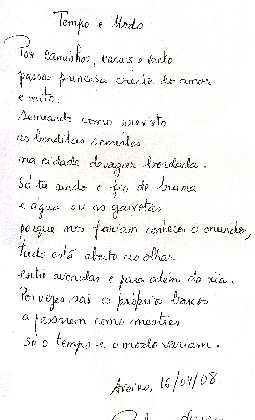 Tempo e Modo
Por caminhos, varais e vento
passas princesa crente do amor
e mito.
Semeando como
as benditas sementes
na cidade devagar bordada.
Só tu sendo o fio de bruma
e água ou as gaivotas
porque nos fariam conhecer o mundo,
tudo está aberto ao olhar
entre avenidas e para além da ria.
Por vezes são os próprios barcos
a como mestres
só o tempo e o modo variam.
Aveiro, 15/04/08